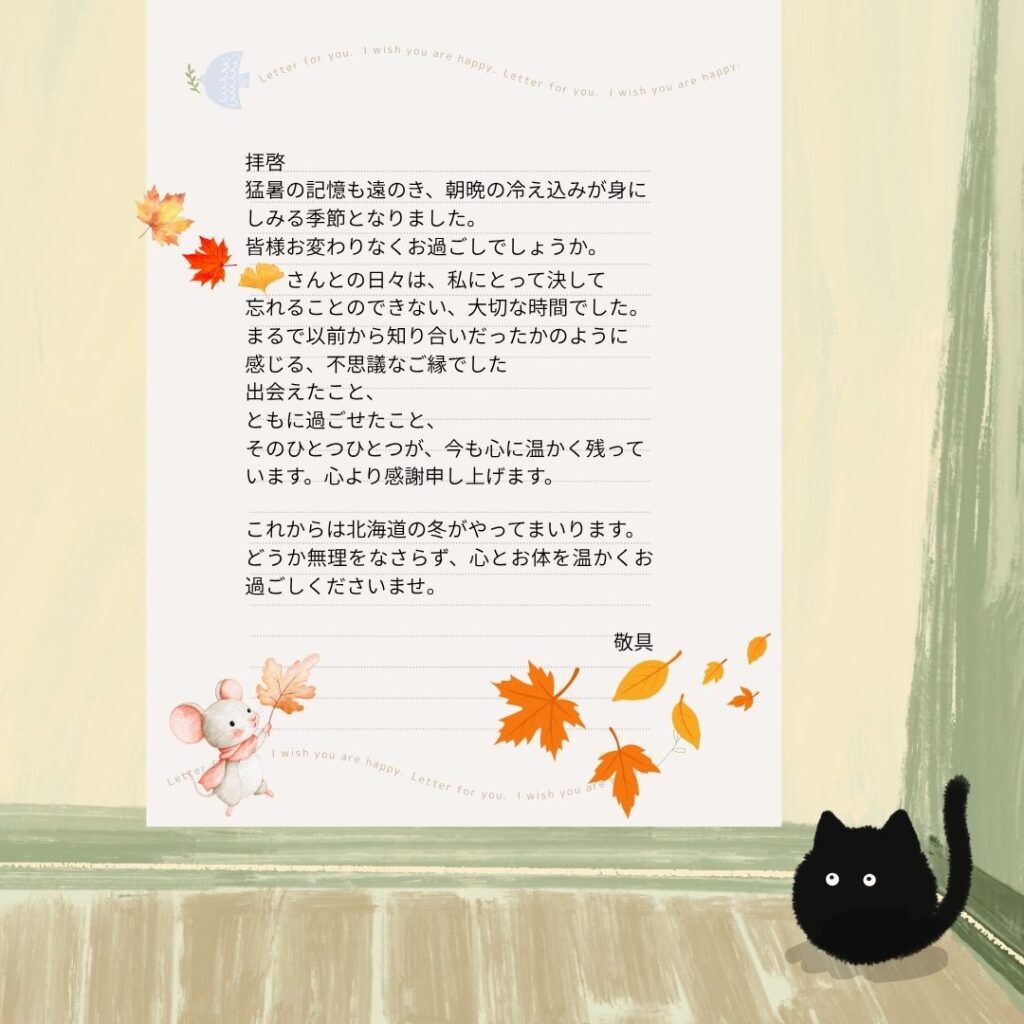 Letter for you.  I wish you are happy. Letter for you.  I wish you are happy.
拝啓
猛暑の記憶も遠のき、朝晩の冷え込みが身に
しみる季節となりました。
皆様お変わりなくお過ごしでしょうか。
さんとの日々は、私にとって決して
忘れることのできない、大切な時間でした。
まるで以前から知り合いだったかのように
感じる、不思議なご縁でした
出会えたこと、
ともに過ごせたこと、
そのひとつひとつが、今も心に温かく残って
います。心より感謝申し上げます。
これからは北海道の冬がやってまいります。
どうか無理をなさらず、心とお体を温かくお
過ごしくださいませ。
敬具
Letter I wish you are happy. Letter for you.  I wish you are